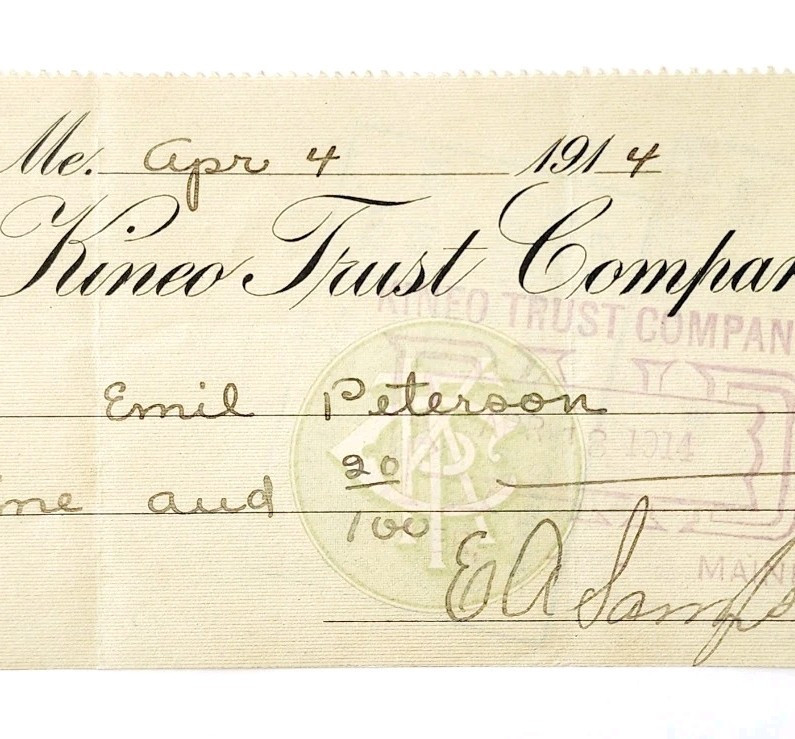 Me. Apr 4 1914
Kineo Trust Compan
KINEO TRUST COMPAN
Emil Peterson
8 1914
ine and 20/100
MAIN
E A Samps